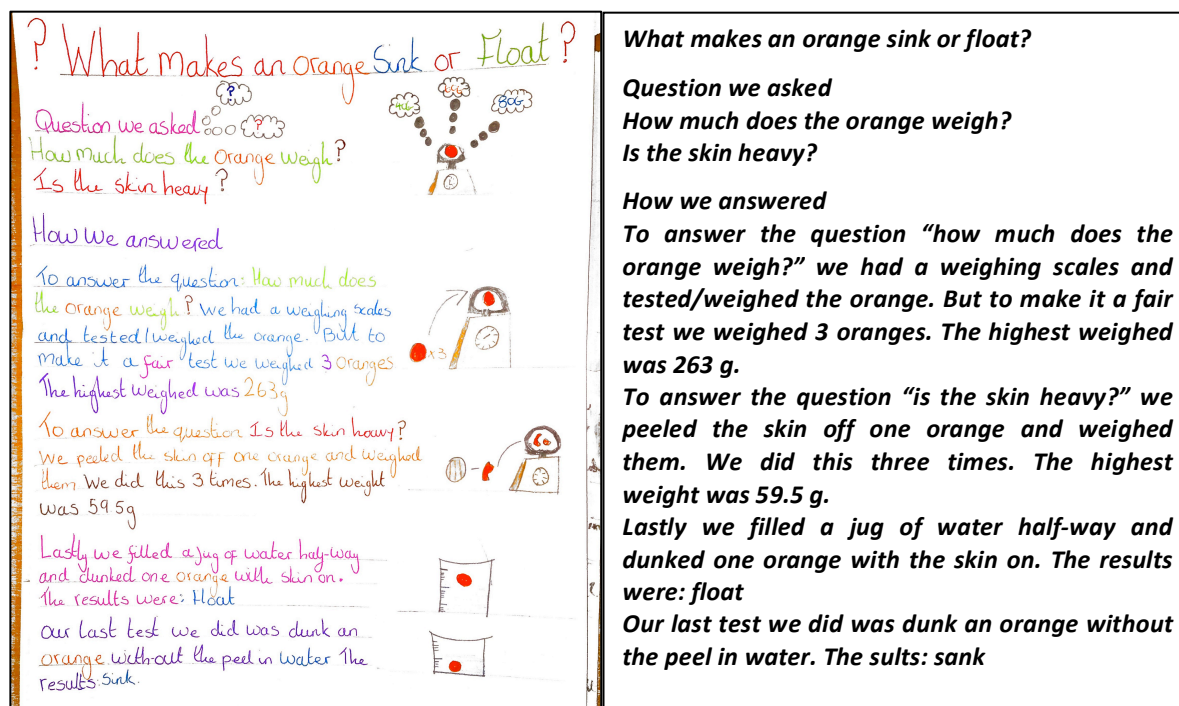 ? What makes an orange Sink or Float ?
?
?
40G
60G
80G
Question we asked
How much does the orange weigh?
Is the skin heavy?
How we answered
To answer the question: How much does
the orange weigh? We had a weighing scales
and tested/weighed the orange. But to
make it a fair test we weighed 3 oranges
The highest weighed was 263g
x3
To answer the question Is the skin heavy?
We peeled the skin off one orange and weighed
them We did this 3 times. The highest weight
was 59.5g
Lastly we filled a jug of water half-way
and dunked one orange with skin on.
The results were: float
Our last test we did was dunk an
orange without the peel in water The
results: Sink.
What makes an orange sink or float?
Question we asked
How much does the orange weigh?
Is the skin heavy?
How we answered
To answer the question “how much does the
orange weigh?” we had a weighing scales and
tested/weighed the orange. But to make it a fair
test we weighed 3 oranges. The highest weighed
was 263 g.
To answer the question “is the skin heavy?” we
peeled the skin off one orange and weighed
them. We did this three times. The highest
weight was 59.5 g.
Lastly we filled a jug of water half-way and
dunked one orange with the skin on. The results
were: float
Our last test we did was dunk an orange without
the peel in water. The sults: sank